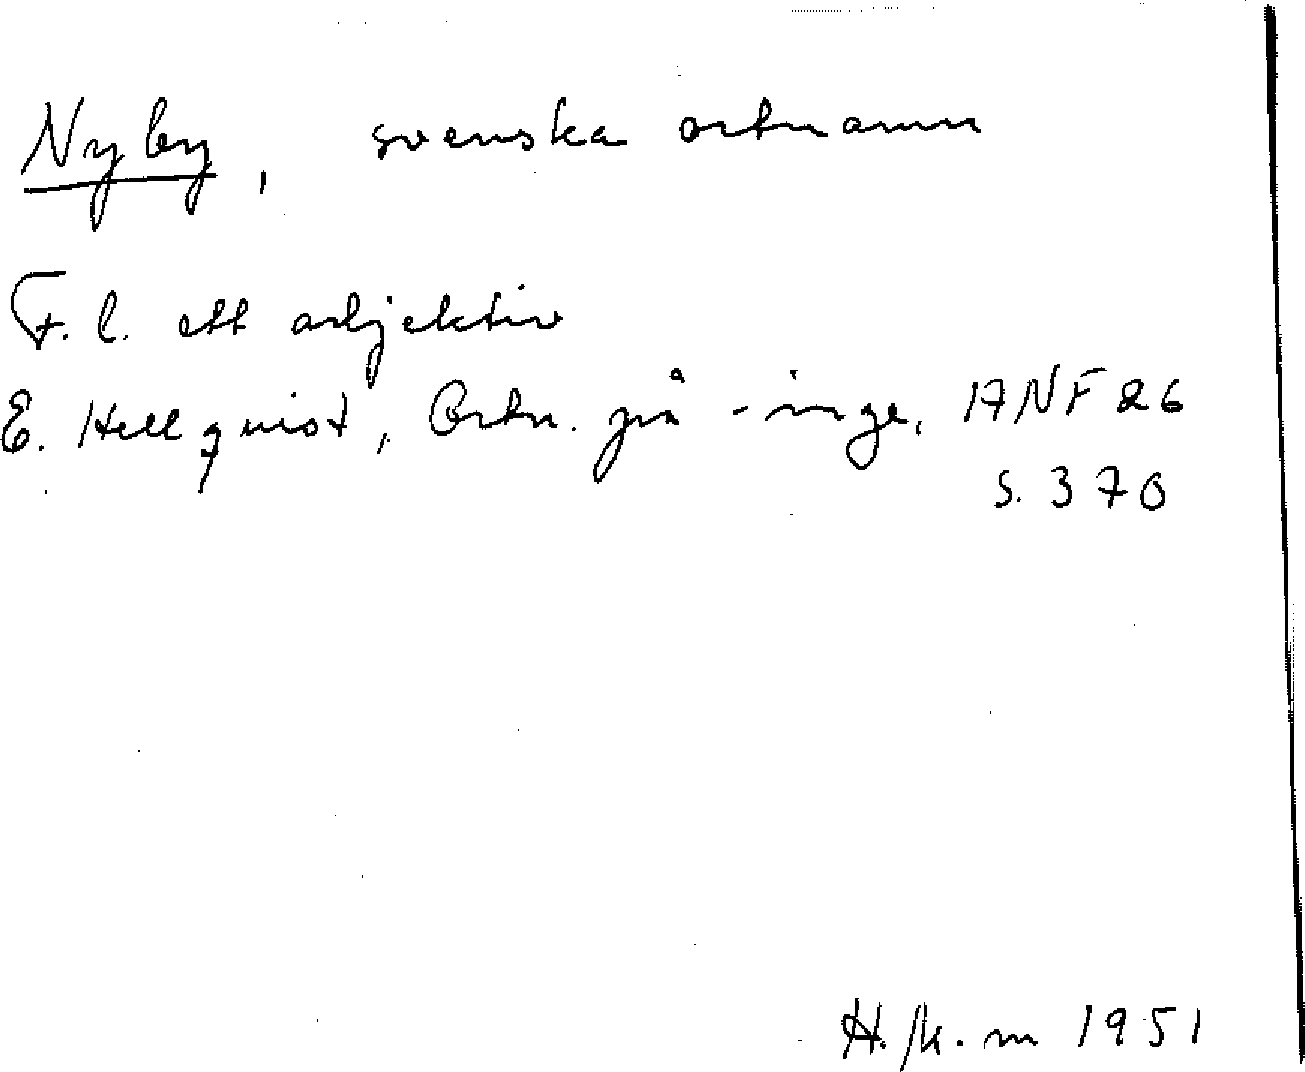 Nyby, svenska ortnamn
F. l. ett adjektiv
E. Hellquist, Ortn. på -inge, ANF 26
s. 370
1951